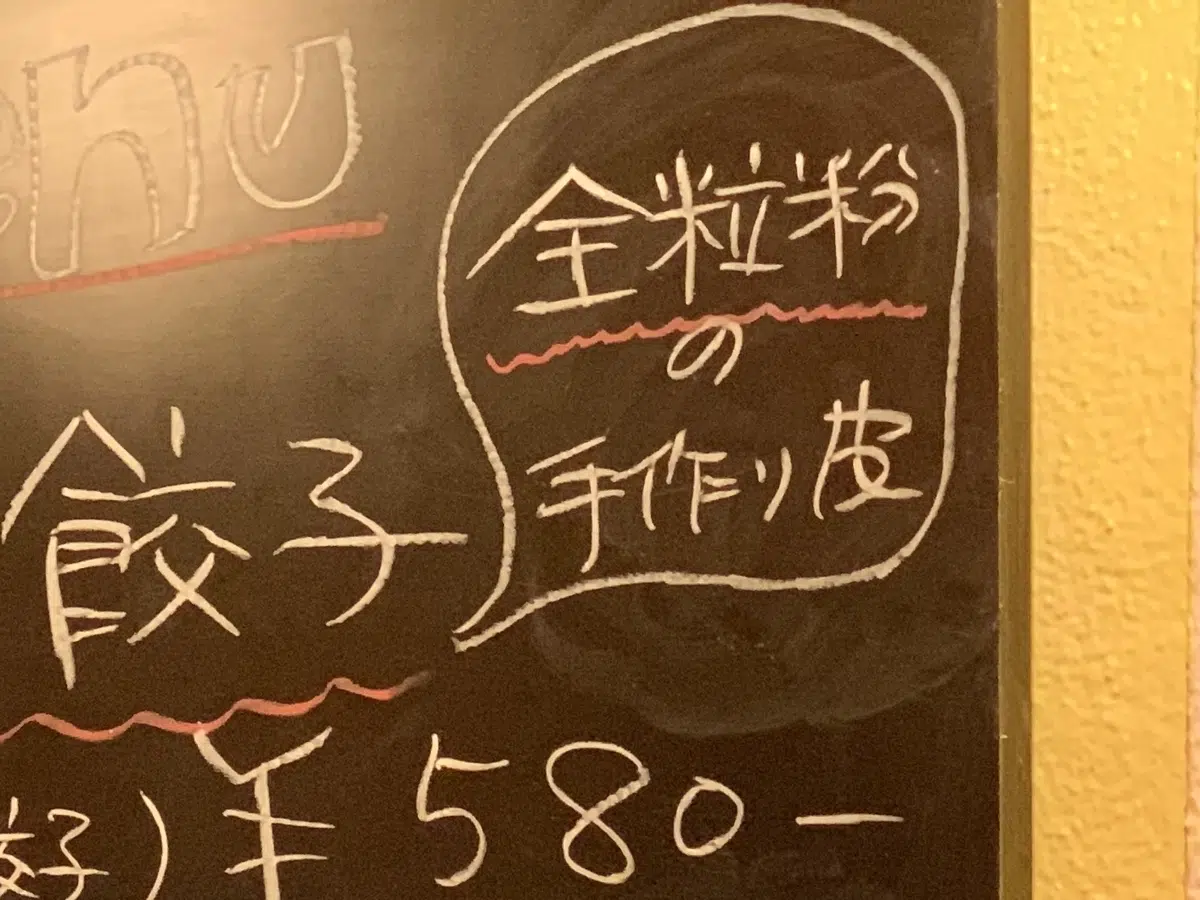 enu
全粒粉
の
手作り皮
餃子
餃子) ¥580-